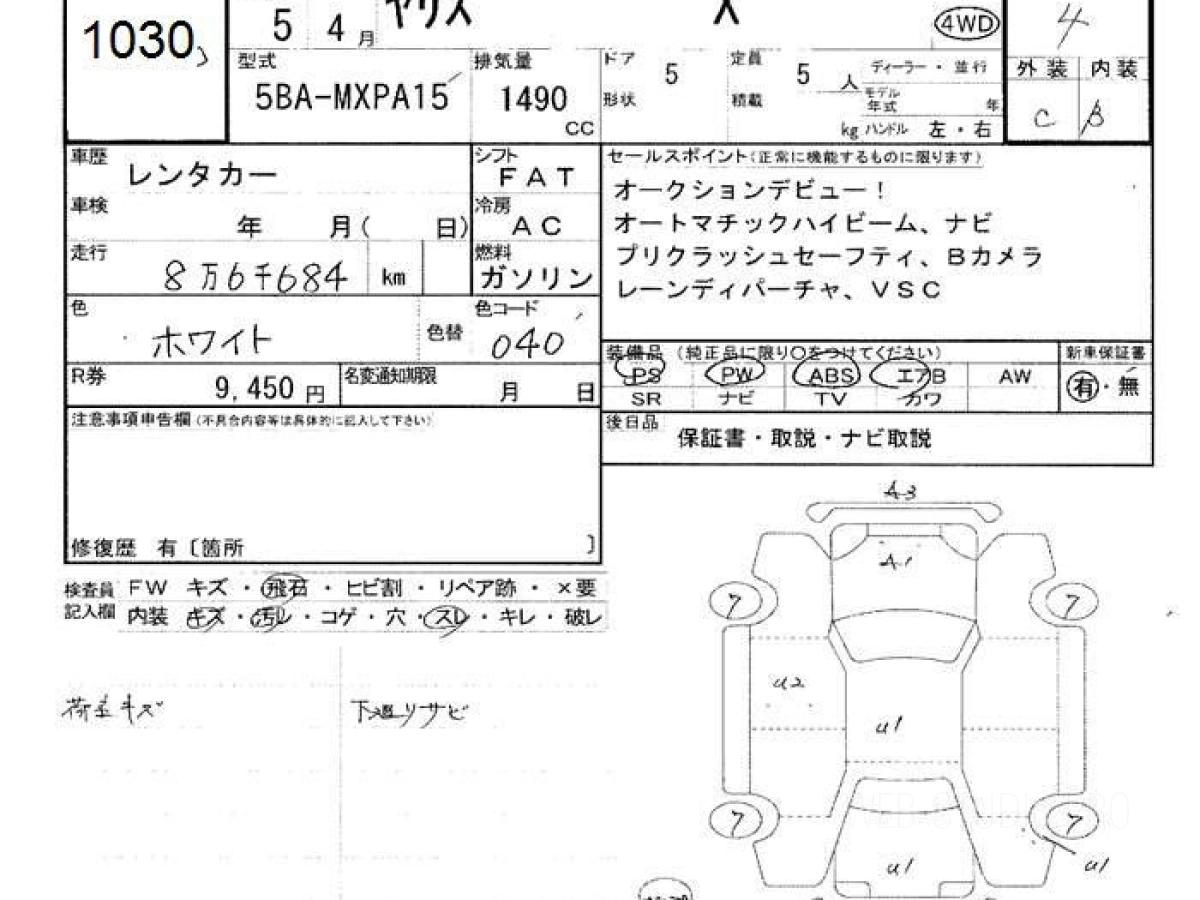 1030
5 4月 ヤリス X 4WD 4
型式 排気量 ドア 5 定員 5 人 ディーラー・並行 外装 内装
5BA-MXPA15 1490 CC 形状 積載 kg モデル年式 年 C B
ハンドル 左・右
車歴 レンタカー シフト FAT セールスポイント(正常に機能するものに限ります)
オークションデビュー!
車検 年 月( 日) 冷房 AC オートマチックハイビーム、ナビ
走行 8万6千684 km 燃料 ガソリン プリクラッシュセーフティ、Bカメラ
レーンディパーチャ、VSC
色 ホワイト 色替 色コード 040
装備品 (純正品に限り○をつけてください) 新車保証書
R券 9,450円 名変通知期限 月 日 PS PW ABS エアB AW 有・無
SR ナビ TV カワ
注意事項申告欄(不具合内容等は具体的に記入して下さい) 後日品 保証書・取説・ナビ取説
修復歴 有〔箇所 〕
検査員 FW キズ・飛石・ヒビ割・リペア跡・×要
記入欄 内装 キズ・汚レ・コゲ・穴・スレ・キレ・破レ
荷室キズ 下廻リサビ
A3
A1
7 7
U2
U1
7 7
U1 U1